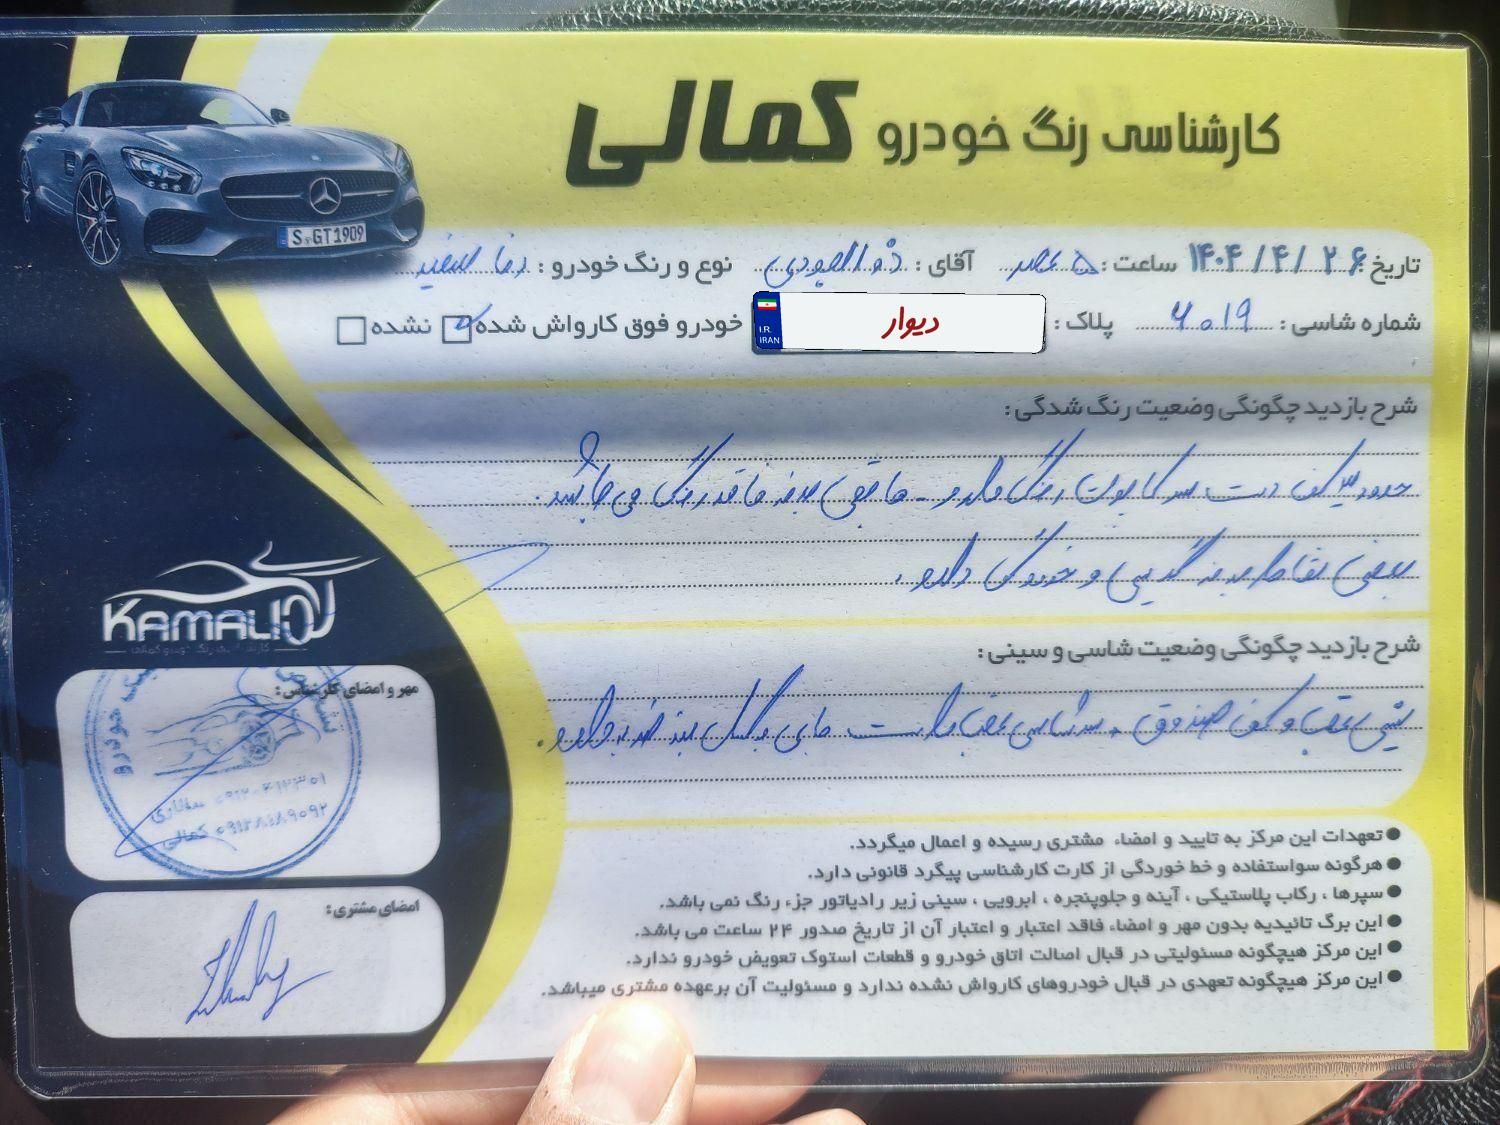 کارشناسی رنگ خودرو کمالی
S GT1909
تاریخ: ۱۴۰۴/۴/۲۶ ساعت: ۵ عصر آقای: نوع و رنگ خودرو: سفید
شماره شاسی: ۶۰۱۹ پلاک: دیوار خودرو فوق کارواش شده نشده
I.R. IRAN
شرح بازدید چگونگی وضعیت رنگ شدگی:
حدود ۳ کف دست سر کاپوت رنگ دارد - مابقی بدنه فاقد رنگ می باشد.
بعضی نقاط بدنه و خوردگی دارد.
شرح بازدید چگونگی وضعیت شاسی و سینی:
سینی عقب و کف صندوق سرشاسی عقب راست جای بکسل بند ضربه دارد.
KAMALI
کارشناسی رنگ خودرو کمالی
مهر و امضای کارشناس:
تشخیص رنگ خودرو
کمالی
امضای مشتری:
تعهدات این مرکز به تایید و امضاء مشتری رسیده و اعمال میگردد.
هرگونه سواستفاده و خط خوردگی از کارت کارشناسی پیگرد قانونی دارد.
سپرها ، رکاب پلاستیکی ، آینه و جلوپنجره ، ابرویی ، سینی زیر رادیاتور جزء رنگ نمی باشد.
این برگ تائیدیه بدون مهر و امضاء فاقد اعتبار و اعتبار آن از تاریخ صدور ۲۴ ساعت می باشد.
این مرکز هیچگونه مسئولیتی در قبال اصالت اتاق خودرو و قطعات استوک تعویض خودرو ندارد.
این مرکز هیچگونه تعهدی در قبال خودروهای کارواش نشده ندارد و مسئولیت آن برعهده مشتری میباشد.